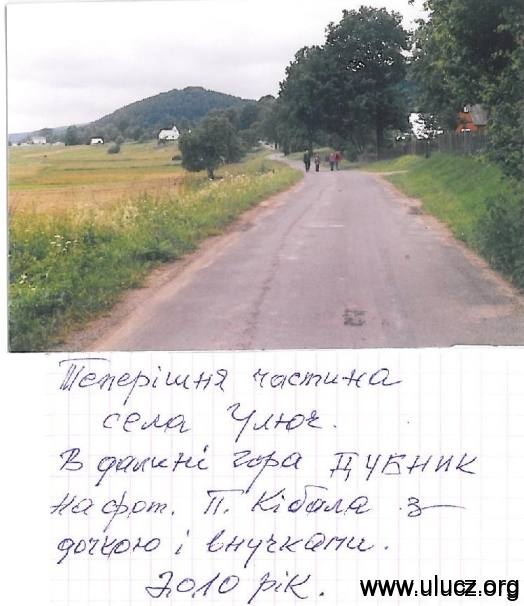 Теперішня частина
села Улюч.
В далині гора ДУБНИК
на фот. П. Кібала з
дочкою і внучками.
2010 рік.
www.ulucz.org